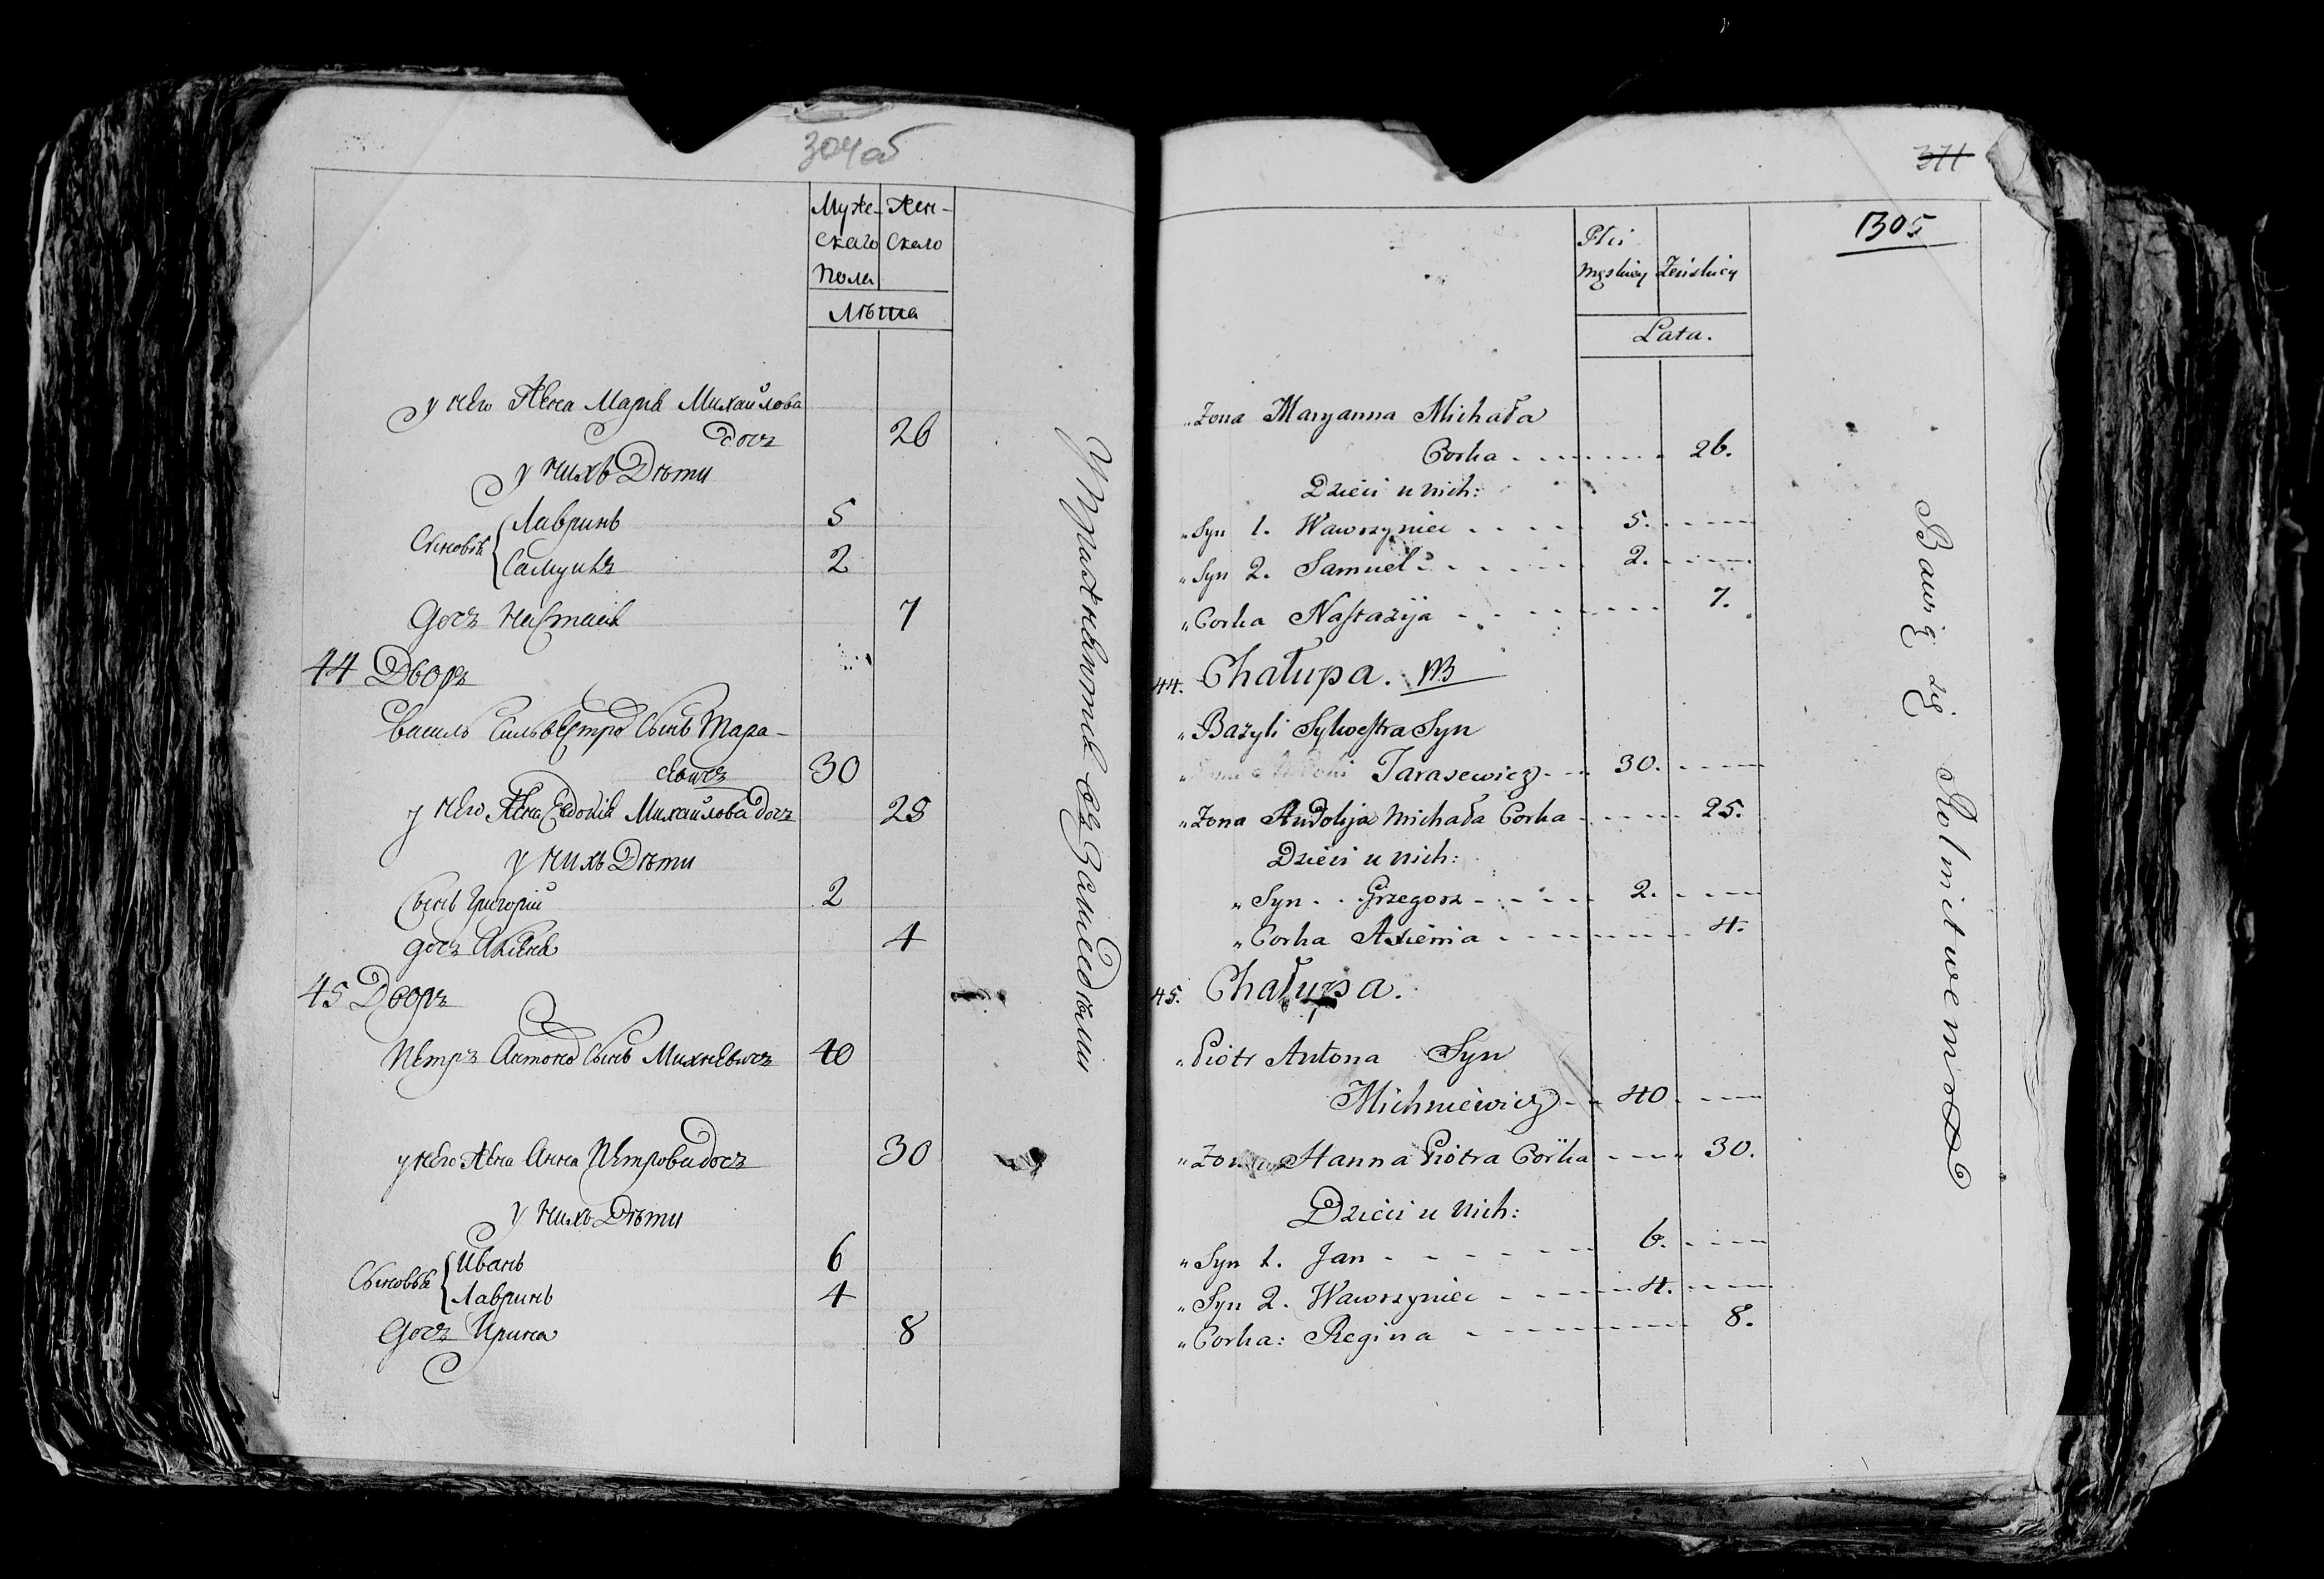 304об
Муже- Жен-
скаго скаго
пола
Лѣта
у него Жена Марья Михайлова
дочъ 26
у нихъ Дѣти
Сыновья Лавринъ 5
Самуилъ 2
дочъ Настасья 7
44 Дворъ
Василь Сильвестровъ Сынъ Тара-
севичъ 30
у него Жена Евдокія Михайлова дочъ 25
у нихъ Дѣти
Сынъ Григорій 2
дочъ Аксенья 4
45 Дворъ
Петръ Антоновъ Сынъ Михневичъ 40
у него Жена Анна Петрова дочъ 30
у нихъ Дѣти
Сыновья Иванъ 6
Лавринъ 4
дочъ Ирина 8
Упражняются въ Земледѣліи
371
1305
Płci
męskiey Żeńskiey
Lata.
„Żona Maryanna Michała
Corka 26.
Dzieci u nich:
„Syn 1. Wawrzyniec 5.
„Syn 2. Samuel 2.
„Corka Nastazija 7.
44. Chałupa.
„Bazyli Sylwestra Syn
Tarasewicz 30.
„Żona Audokija Michała Corka 25.
Dzieci u nich:
„Syn Grzegorz 2.
„Corka Axienia 4.
45. Chałupa.
„Piotr Antona Syn
Michniewicz 40
„Żona Hanna Piotra Corka 30.
Dzieci u nich:
„Syn 1. Jan 6.
„Syn 2. Wawrzyniec 4.
„Corka: Regina 8.
Bawią się Rolnitwem